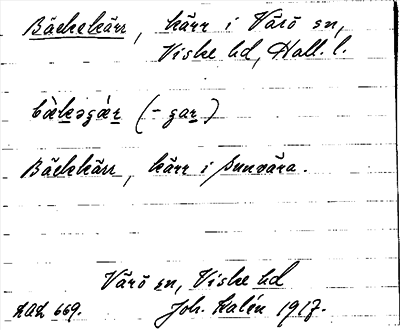 Bäckekärr, kärr i Värö sn,
Viske hd, Hall. l.
bæ̀kəgær (-gar)
Bäckkärr, kärr i Sunvära.
Värö sn, Viske hd
LAL 669. Joh. Kalén 1917.